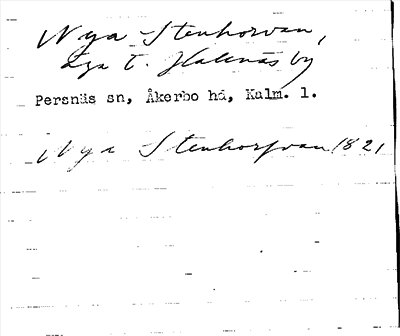 Nya Stenhorvan,
äga t. Halenäs by
Persnäs sn, Åkerbo hd, Kalm. l.
Nya Stenhorfvan 1821